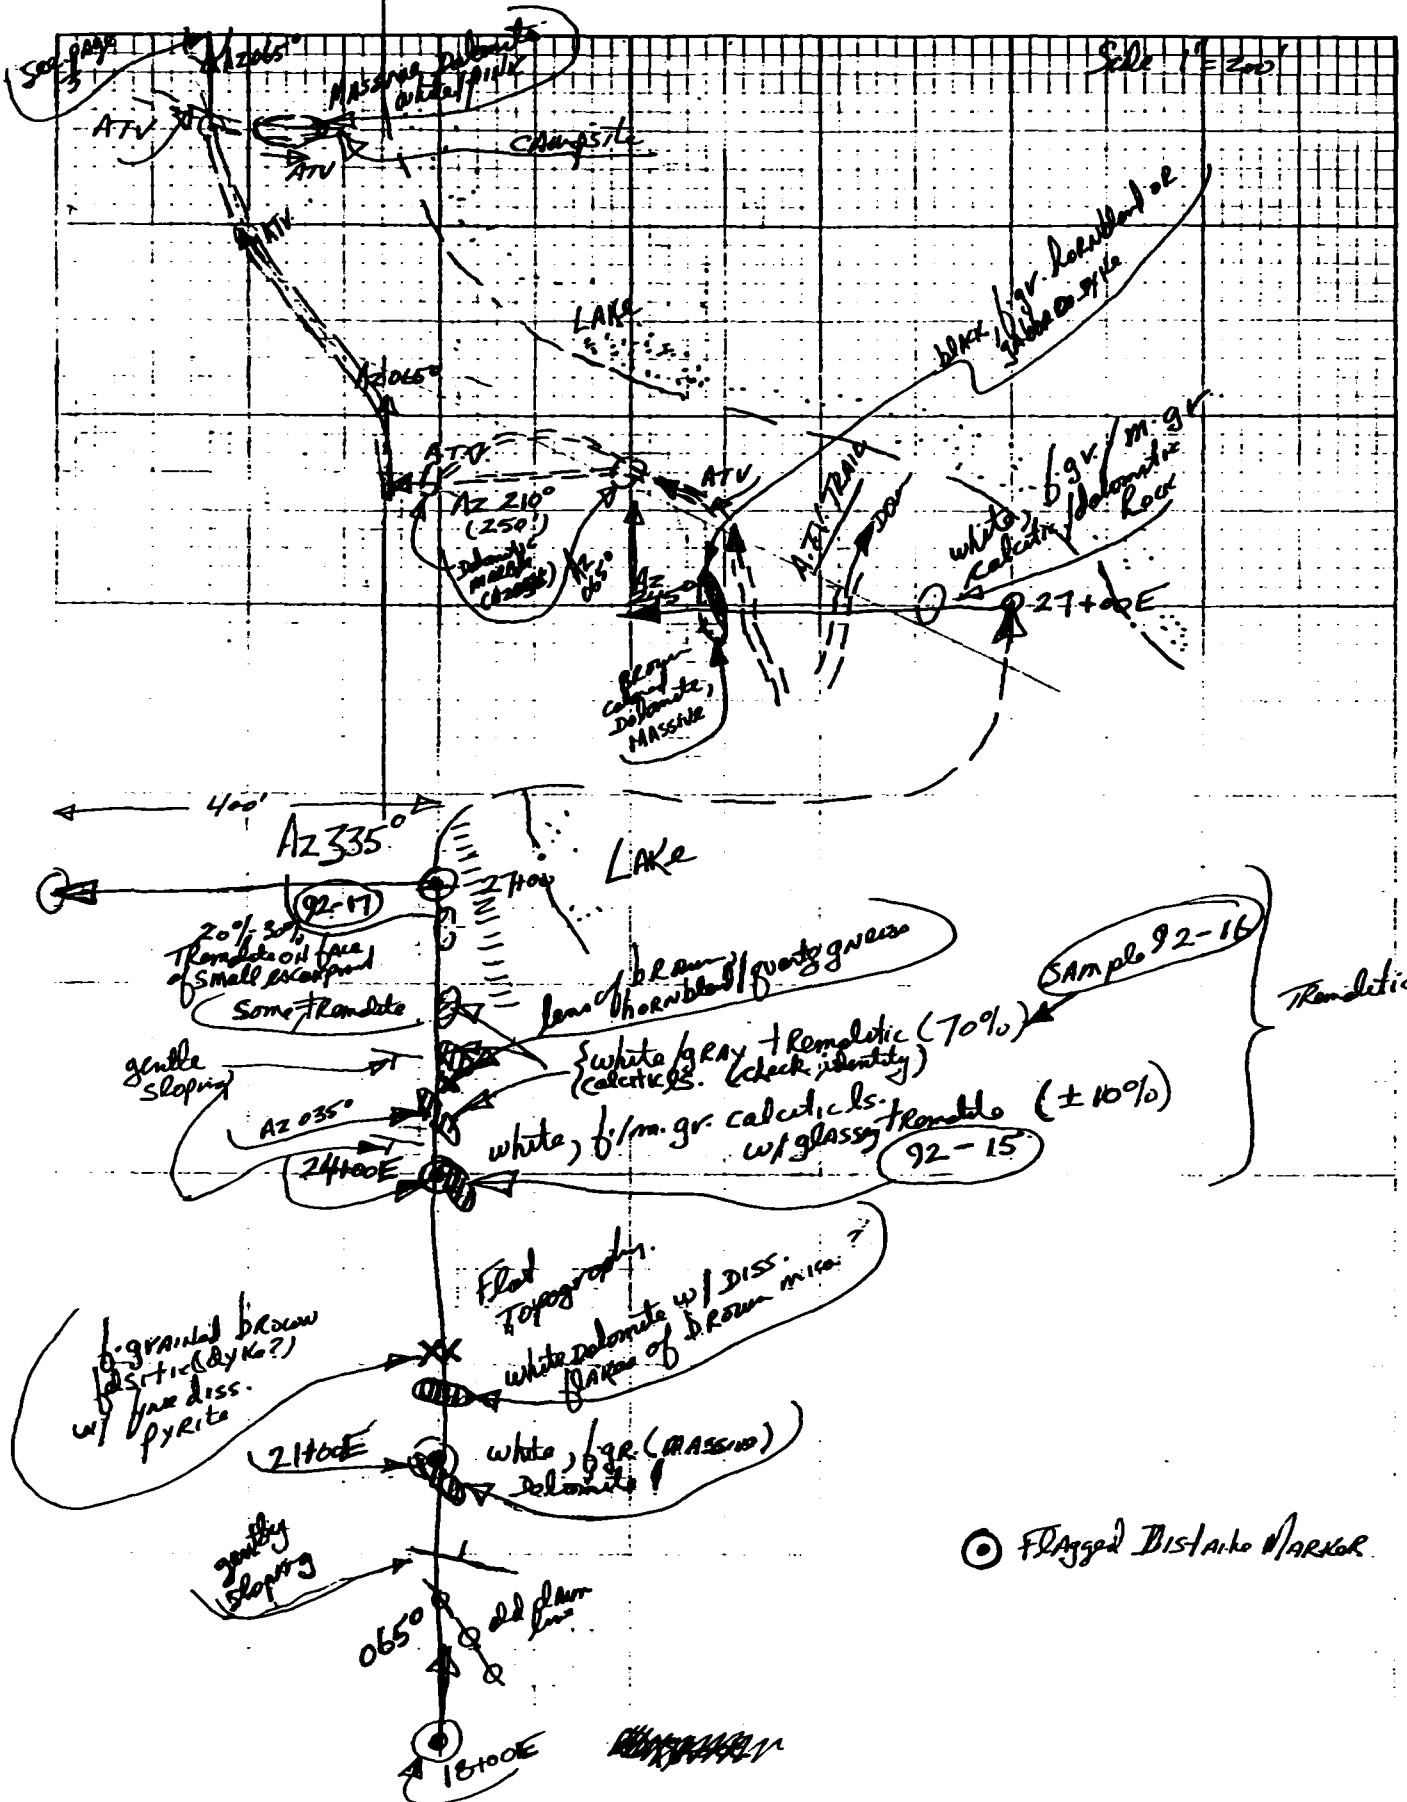 See page
Az 065°
Massive Dolomite
white/pink
Scale 1" = 200'
ATV
Campsite
ATV
ATV
LAKE
black, f.gr. hornblend or
gabbro dyke
Az 065°
ATV
Az 210°
(250')
Dolomitic
marble
Az
065°
ATV
A.T.V. TRAIL
Down
white, f.gr./m.gr.
calcitic/dolomitic
Rock
Az
245°
27+00E
Brown
colored
Dolomite,
MASSIVE
400'
Az 335°
LAKE
27+00
92-17
20%-30%
Tremolite on face
of small escarpment
Some tremolite
lens of brown
hornblend/quartz gneiss
Sample 92-16
Tremolitic
gentle
sloping
white/gray tremolitic (70%)
calcitic ls. (check identity)
Az 035°
white, f./m.gr. calcitic ls.
w/ glassy tremolite (±10%)
24+00E
92-15
Flat
Topography.
f-grained brown
felsitic (dyke?)
w/ fine diss.
pyrite
white Dolomite w/ Diss.
flakes of brown mica ?
21+00E
white, f.gr. (massive)
Dolomite
gently
sloping
Flagged Distance Marker
old claim
line
065°
18+00E